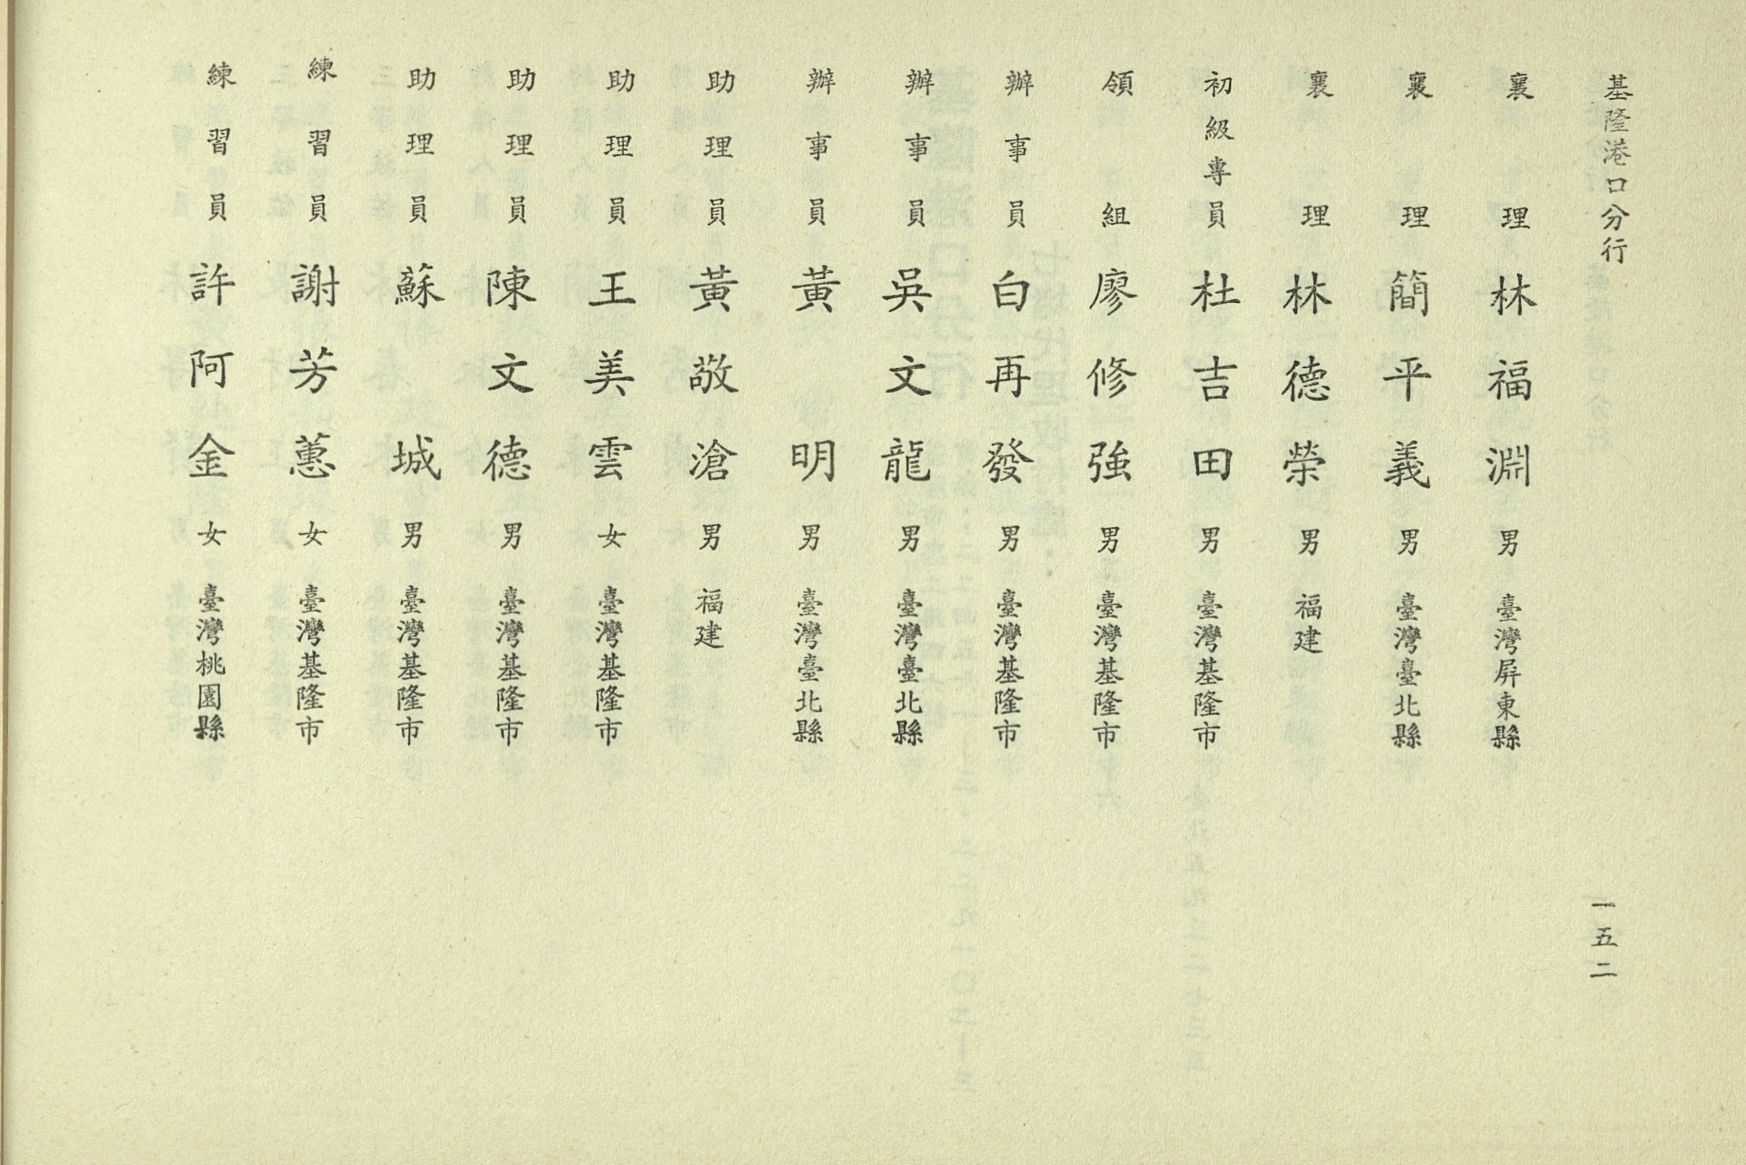 基隆港口分行
一五二
襄理 林福淵 男 臺灣屏東縣
襄理 簡平義 男 臺灣臺北縣
襄理 林德榮 男 福建
初級專員 杜吉田 男 臺灣基隆市
領組 廖修強 男 臺灣基隆市
辦事員 白再發 男 臺灣基隆市
辦事員 吳文龍 男 臺灣臺北縣
辦事員 黃明 男 臺灣臺北縣
助理員 黃敬滄 男 福建
助理員 王美雲 女 臺灣基隆市
助理員 陳文德 男 臺灣基隆市
助理員 蘇城 男 臺灣基隆市
練習員 謝芳蕙 女 臺灣基隆市
練習員 許阿金 女 臺灣桃園縣